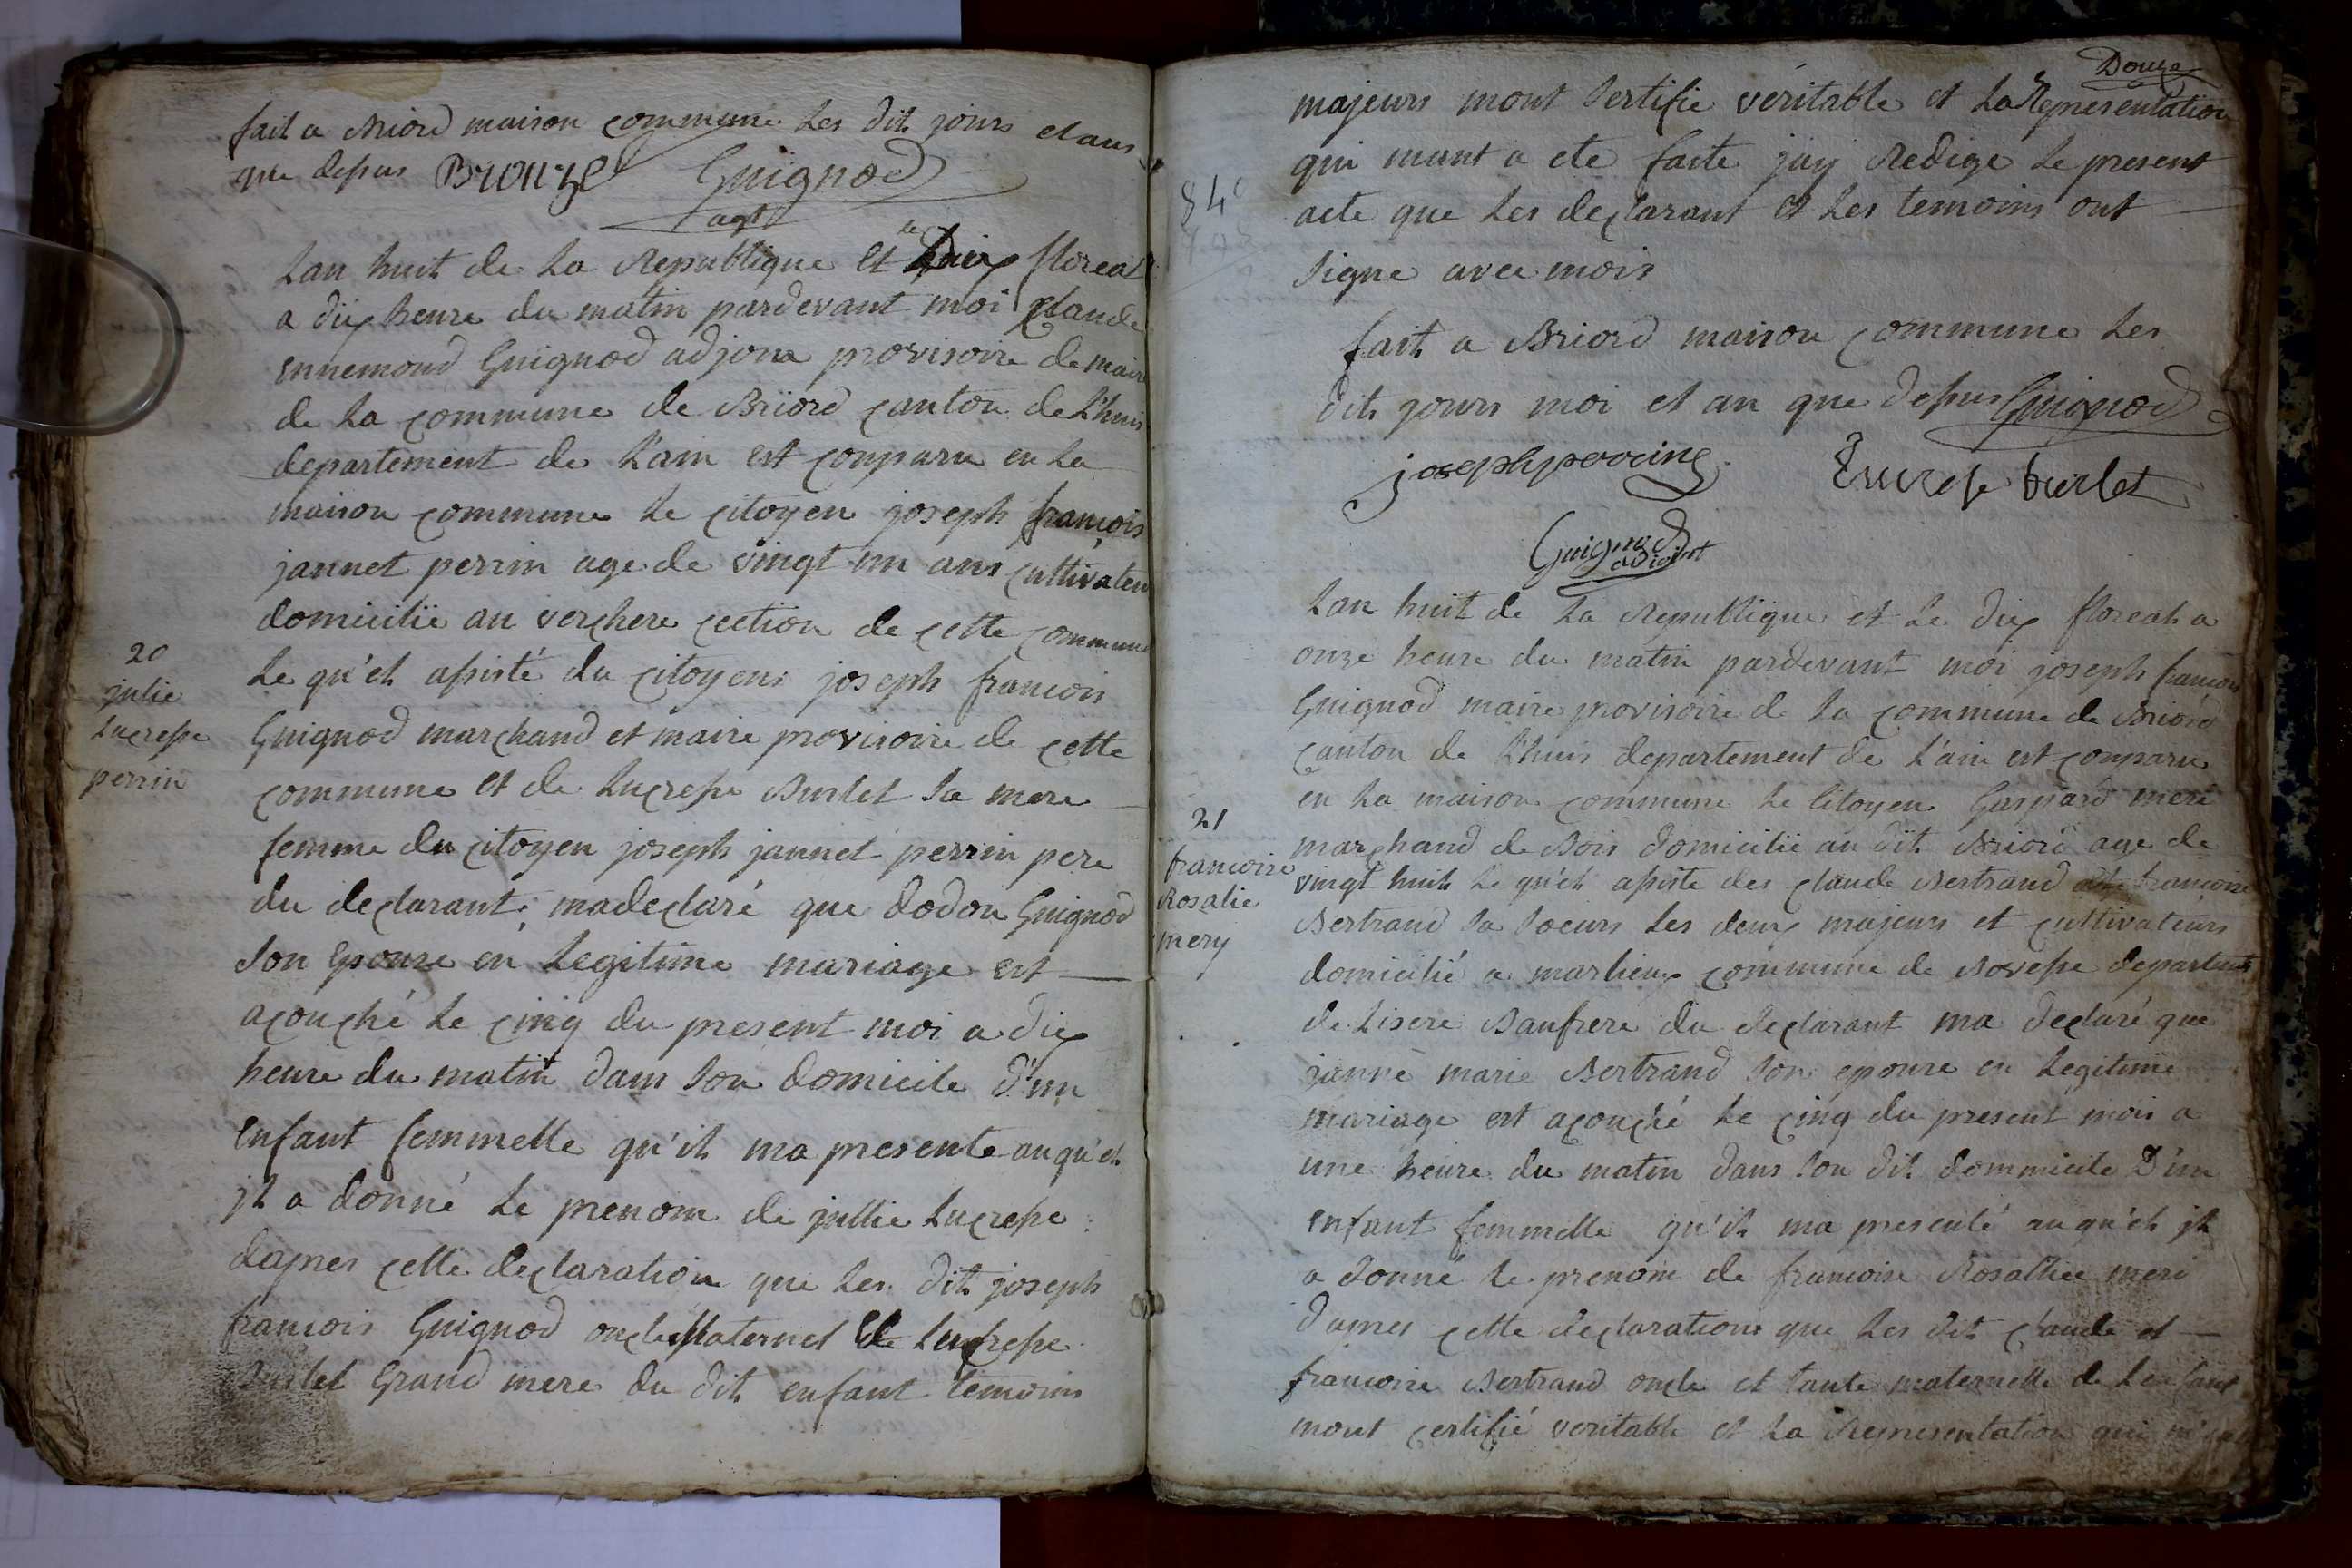 fait a Briord maison commune les dit jours et ans
que depus Bronze Guignod
agt
Lan huit de la Republique et le Dix floreal
a dix heure du matin pardevant moi Claude
ennemond Guignod adjoin provisoire de maire
de la commune de Briord canton de L'huis
departement de L'ain est comparu en la
maison commune le citoyen joseph françois
jannet perrin age de vingt un ans cultivateur
domicilié au verchere cection de cette commune
le qu'el assisté du citoyens joseph francois
Guignod marchand et maire provisoire de cette
commune et de Lucresse Burlet sa mere
femme du citoyen joseph jannet perrin pere
du declarant madeclaré que dodon Guignod
son epouse en legitime mariage est
acouché le cinq du present moi a dix
heure du matin dans son domicile d'un
enfant femmelle qu'il ma presente auqu'el
jl a donné le prenom de jullie Lucresse
dapres cette declaration que les dit joseph
francois Guignod oncle Maternel et Lucresse
Burlet Grand mere du dit enfant temoins
20
julie
Lucresse
perrin
Douze
majeurs mont sertifie véritable et la Representation
qui mant a ete faite jay Redige le present
acte que les declarant et les temoins ont
signe avec mois
fait a Briord maison commune les
dits jours moi et an que depus Guignod
josephperrin Lucresse burlet
Guignod
adjoint
Lan huit de la Republique et le dix floreal a
onze heure du matin pardevant moi joseph francois
Guignod maire provisoire de la commune de Briord
canton de L'huis departement de L'ain est comparu
en la maison commune le Citoyen Gaspard meri
marchand de Bois domicilié au dit Briord age de
vingt huit le qu'el assiste des claude Bertrand francoise
Bertrand sa soeurs les deux majeurs et cultivateurs
domicilié a marlieux commune de Bovesse departement
de Lisere Baufrere du declarant ma declaré que
janne marie Bertrand son epouse en legitime
mariage est acouché le cinq du present mois a
une heure du matin dans son dit dommicile D'un
enfant femmelle qu'il ma presenté auqu'el jl
a donné le prenom de francoise Rosalhie meri
dapres cette declarations que les dit claude et
francoise Bertrand oncle et tante maternelle de lenfant
mont certifié veritable et la Representation qui
21
francoise
Rosalie
mery